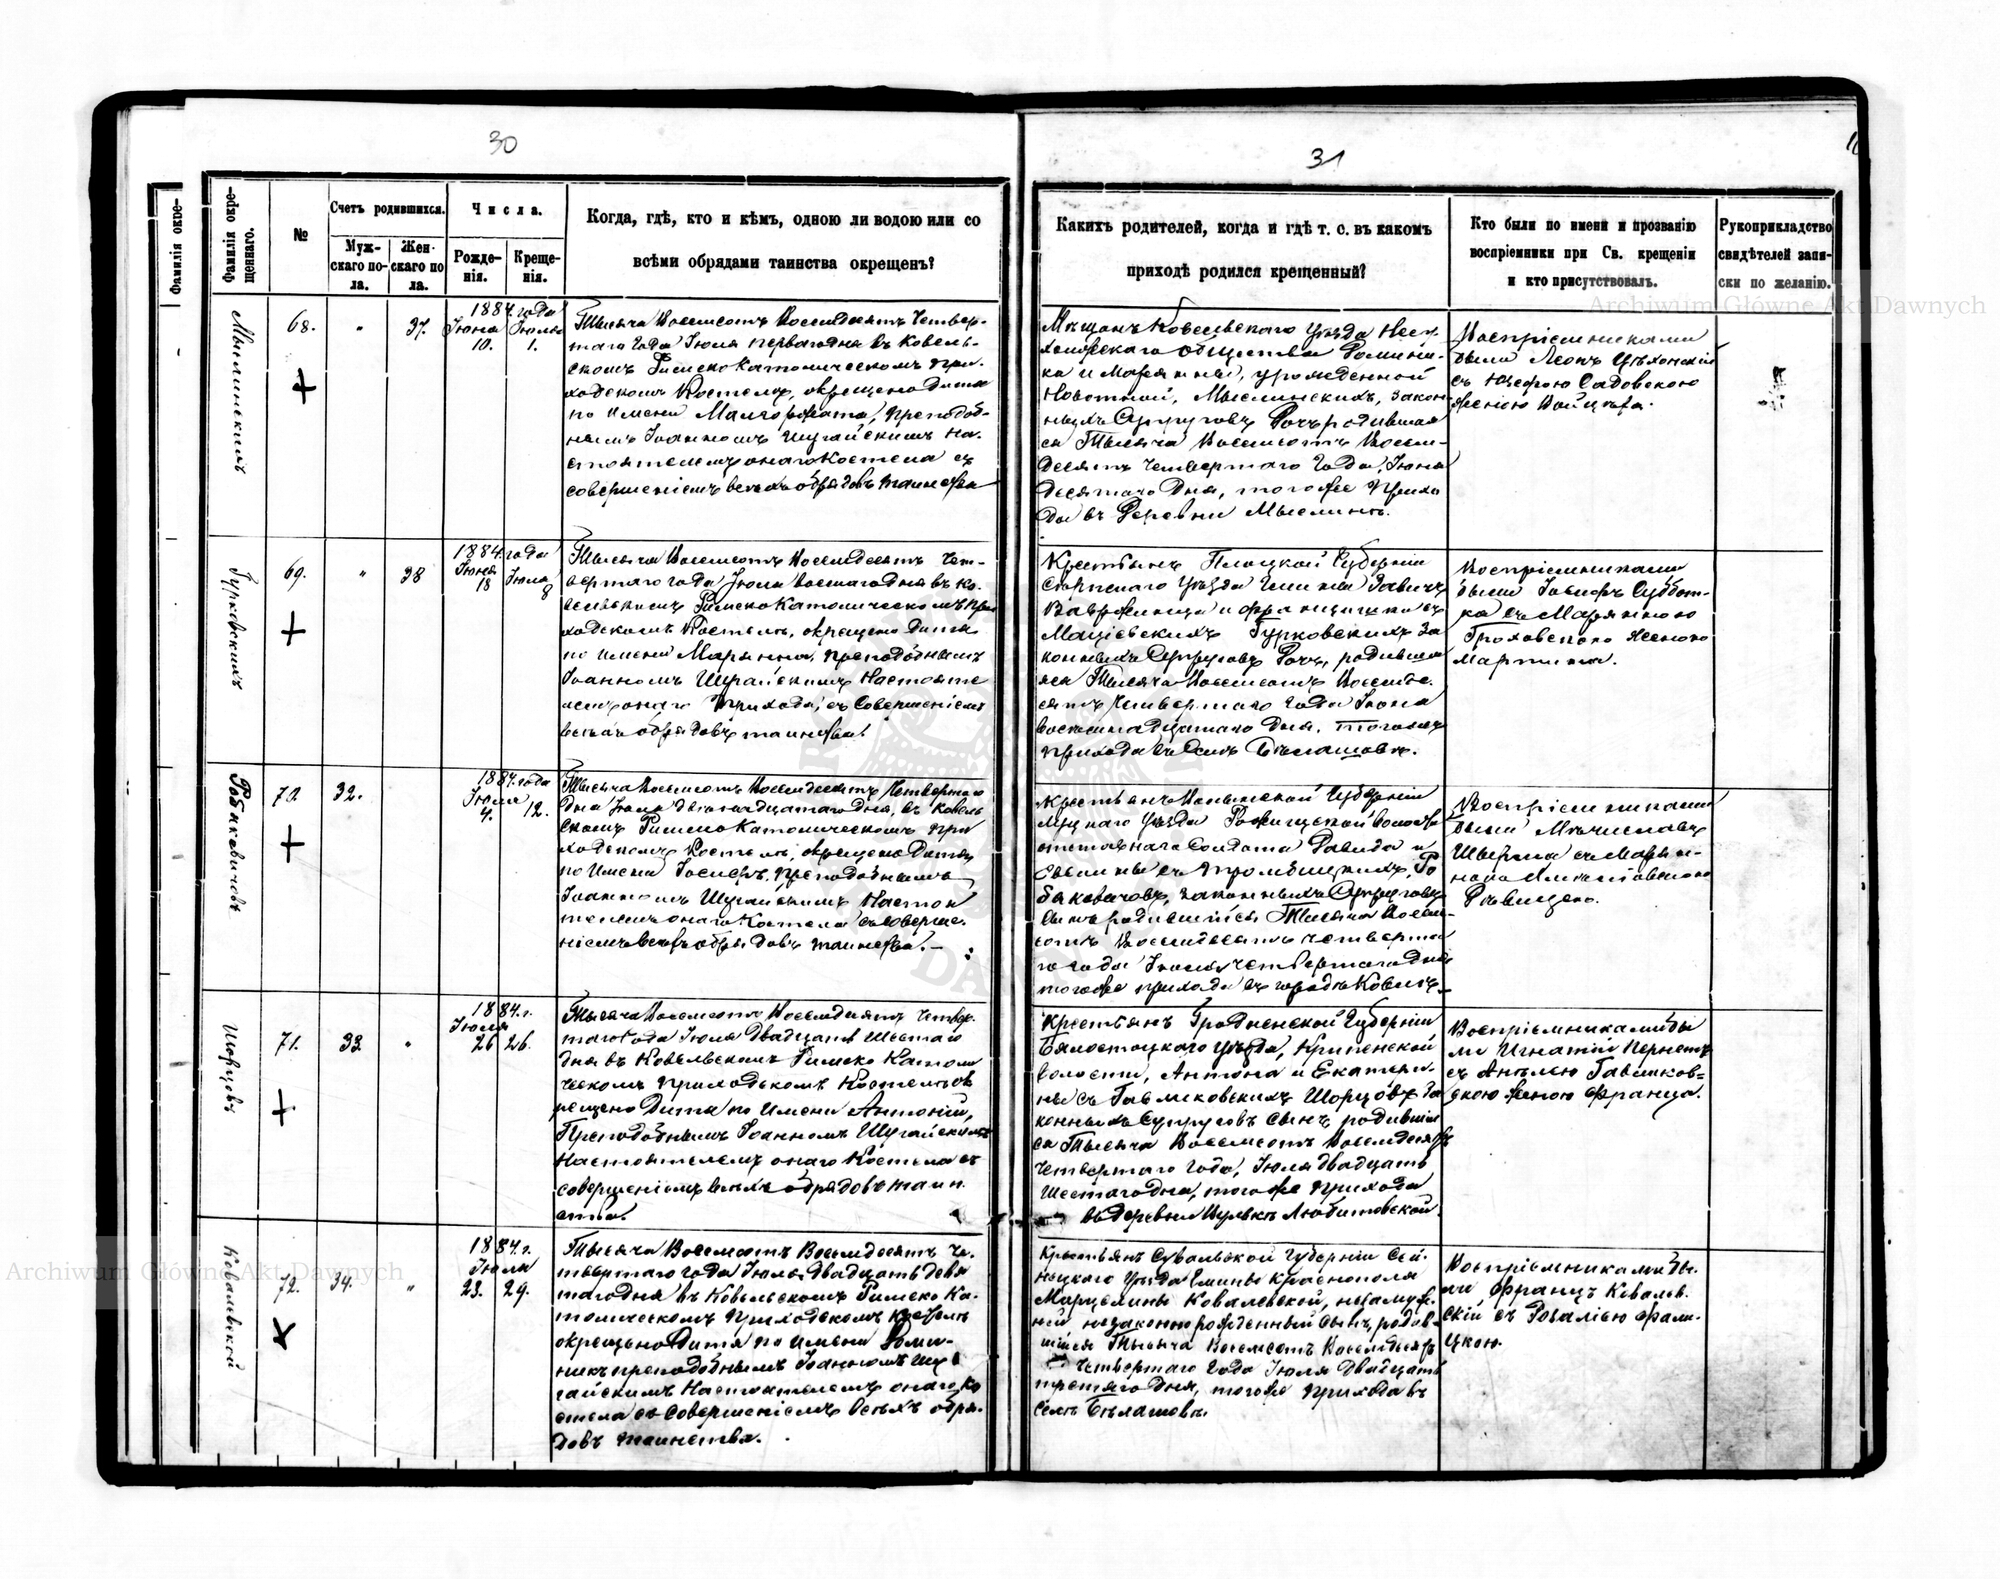 30
Фамилія окре-
Фамилія окре-
щеннаго.
№
Счетъ родившихся.
Муж-
скаго по-
ла.
Жен-
скаго по
ла.
Числа.
Рожде-
нія.
Креще-
нія.
Когда, гдѣ, кто и кѣмъ, одною ли водою или со
всѣми обрядами таинства окрещенъ?
68.
"
37.
1884. года
Іюня Іюля
10. 1.
Тысяча Восемьсотъ Восемьдесятъ Четвер-
таго Года Іюля перваго дня въ Ковель-
скомъ Римско Католическомъ При-
ходскомъ Костелѣ, окрещено Дитя
по Имени Малгоржата, Преподоб-
нымъ Іоанномъ Шугайскимъ На-
стоятелемъ онаго Костела съ
совершеніемъ всѣхъ обрядовъ таинства
Гурковскихъ
69.
"
38
1884. года
Іюня Іюля
18 8
Тысяча Восемьсотъ Восемьдесятъ Чет-
вертаго года Іюля Восмаго дня въ Ко-
вельскомъ Римско Католическомъ При
ходскомъ Костелѣ, окрещено Дитя
по имени Марянна, Преподобнымъ
Іоанномъ Шугайскимъ Настояте
лемъ онаго Прихода, съ Совершеніемъ
всѣхъ обрядовъ таинства.
70.
32.
1884. года
Іюля
4. 12.
Тысяча Восемьсотъ Восемьдесятъ Четвертаго
Дна Іюля двенадцатаго дня, въ Ковель
скомъ Римско Католическомъ При
ходскомъ Костелѣ, окрещено Дитя
по Имени Іосифъ, Преподобнымъ
Іоанномъ Шугайскимъ Настоя
телемъ онаго Костела съ соверше-
ніемъ всѣхъ обрядовъ таинства.
Шорцовъ
71.
33.
"
1884. г.
Іюля
26 26.
Тысяча Восемьсотъ Восемьдесятъ Четвер-
таго Года Іюля Двадцать Шестаго
дня въ Ковельскомъ Римско Католи
ческомъ Приходскомъ Костелѣ ок
рещено Дитя по Имени Антоній,
Преподобнымъ Іоанномъ Шугайскимъ
Настоятелемъ онаго Костела съ
совершеніемъ всѣхъ обрядовъ таин
ства.
Ковальской
72.
34.
"
1884. г.
Іюля
23. 29.
Тысяча Восемьсотъ Восемьдесятъ Че-
твертаго года Іюля Двадцать Девя
таго дня въ Ковельскомъ Римско Ка-
толическомъ Приходскомъ Костелѣ
окрещено Дитя по имени Доми-
никъ преподобнымъ Іоанномъ Шу
гайскимъ Настоятелемъ онаго Ко
стела съ совершеніемъ всѣхъ обря-
довъ таинства.
31
Какихъ родителей, когда и гдѣ т. е. въ какомъ
приходѣ родился крещенный?
Кто были по имени и прозванію
воспріемники при Св. крещеніи
и кто присутствовалъ.
Рукоприкладство
свидѣтелей запи-
ски по желанію.
Мѣщанъ Ковельскаго Уѣзда
Общества Домини-
ка и Марянны, урожденной
Новотной, Мыслинскихъ, закон-
ныхъ Супруговъ Дочь родившая
ся Тысяча Восемьсотъ Восемь-
десятъ Четвертаго Года, Іюня
десятаго Дня, того же Прихо
да въ Деревни
Воспріемниками
были Леонъ
съ Юзефою Садовскою
женою Войцѣха.
Крестьянъ Плоцкой Губерніи
Уѣзда Гмины
и Францишки съ
Маціевскихъ Гурковскихъ За
конныхъ Супруговъ Дочь, родивша
яся Тысяча Восемьсотъ Восемьде-
сятъ Четвертаго Года Іюня
восемнадцатаго Дня, того же
прихода въ Селѣ Бѣлашовѣ.
Воспріемниками
были Іосифъ Суббот-
ка съ Марянною
Гроховскою женою
Мартина.
Крестьянъ Волынской Губерніи
Луцкаго Уѣзда Рожищской волости
отставнаго Солдата Давида и
законныхъ Супруговъ
сынъ родившійся Тысяча Восемь-
сотъ Восемьдесятъ четверта
го года Іюля четвертаго Дня
того же прихода въ городѣ Ковель.
Воспріемниками
были Мечиславъ
съ Марян-
ною
Крестьянъ Гродненской Губерніи
Бялостоцкаго Уѣзда,
волости, Антона и Екатери-
ны съ Гавликовскихъ Шорцовъ За
конныхъ Супруговъ сынъ родивший
ся Тысяча Восемьсотъ Восемьдесятъ
Четвертаго Года, Іюля двадцать
Шестаго дня, того же Прихода
въ деревни Любитовской.
Воспріемниками бы
ли Игнатій
съ Анѣлею Гавликов-
скою женою Франца.
Крестьянъ Сувальской Губерніи Сей-
нецкаго Уѣзда Гмины Краснополя
Марцелины Ковалевской, незамуж-
ней незаконнорожденный сынъ, родив-
шійся Тысяча Восемьсотъ Восемьдесятъ
Четвертаго Года Іюля Двадцать
третяго Дня, того же Прихода въ
Селѣ Бѣлашовѣ.
Воспріемниками бы-
ли Францъ Коваль-
скій съ Розаліею
Archiwum Główne Akt Dawnych
Archiwum Główne Akt Dawnych